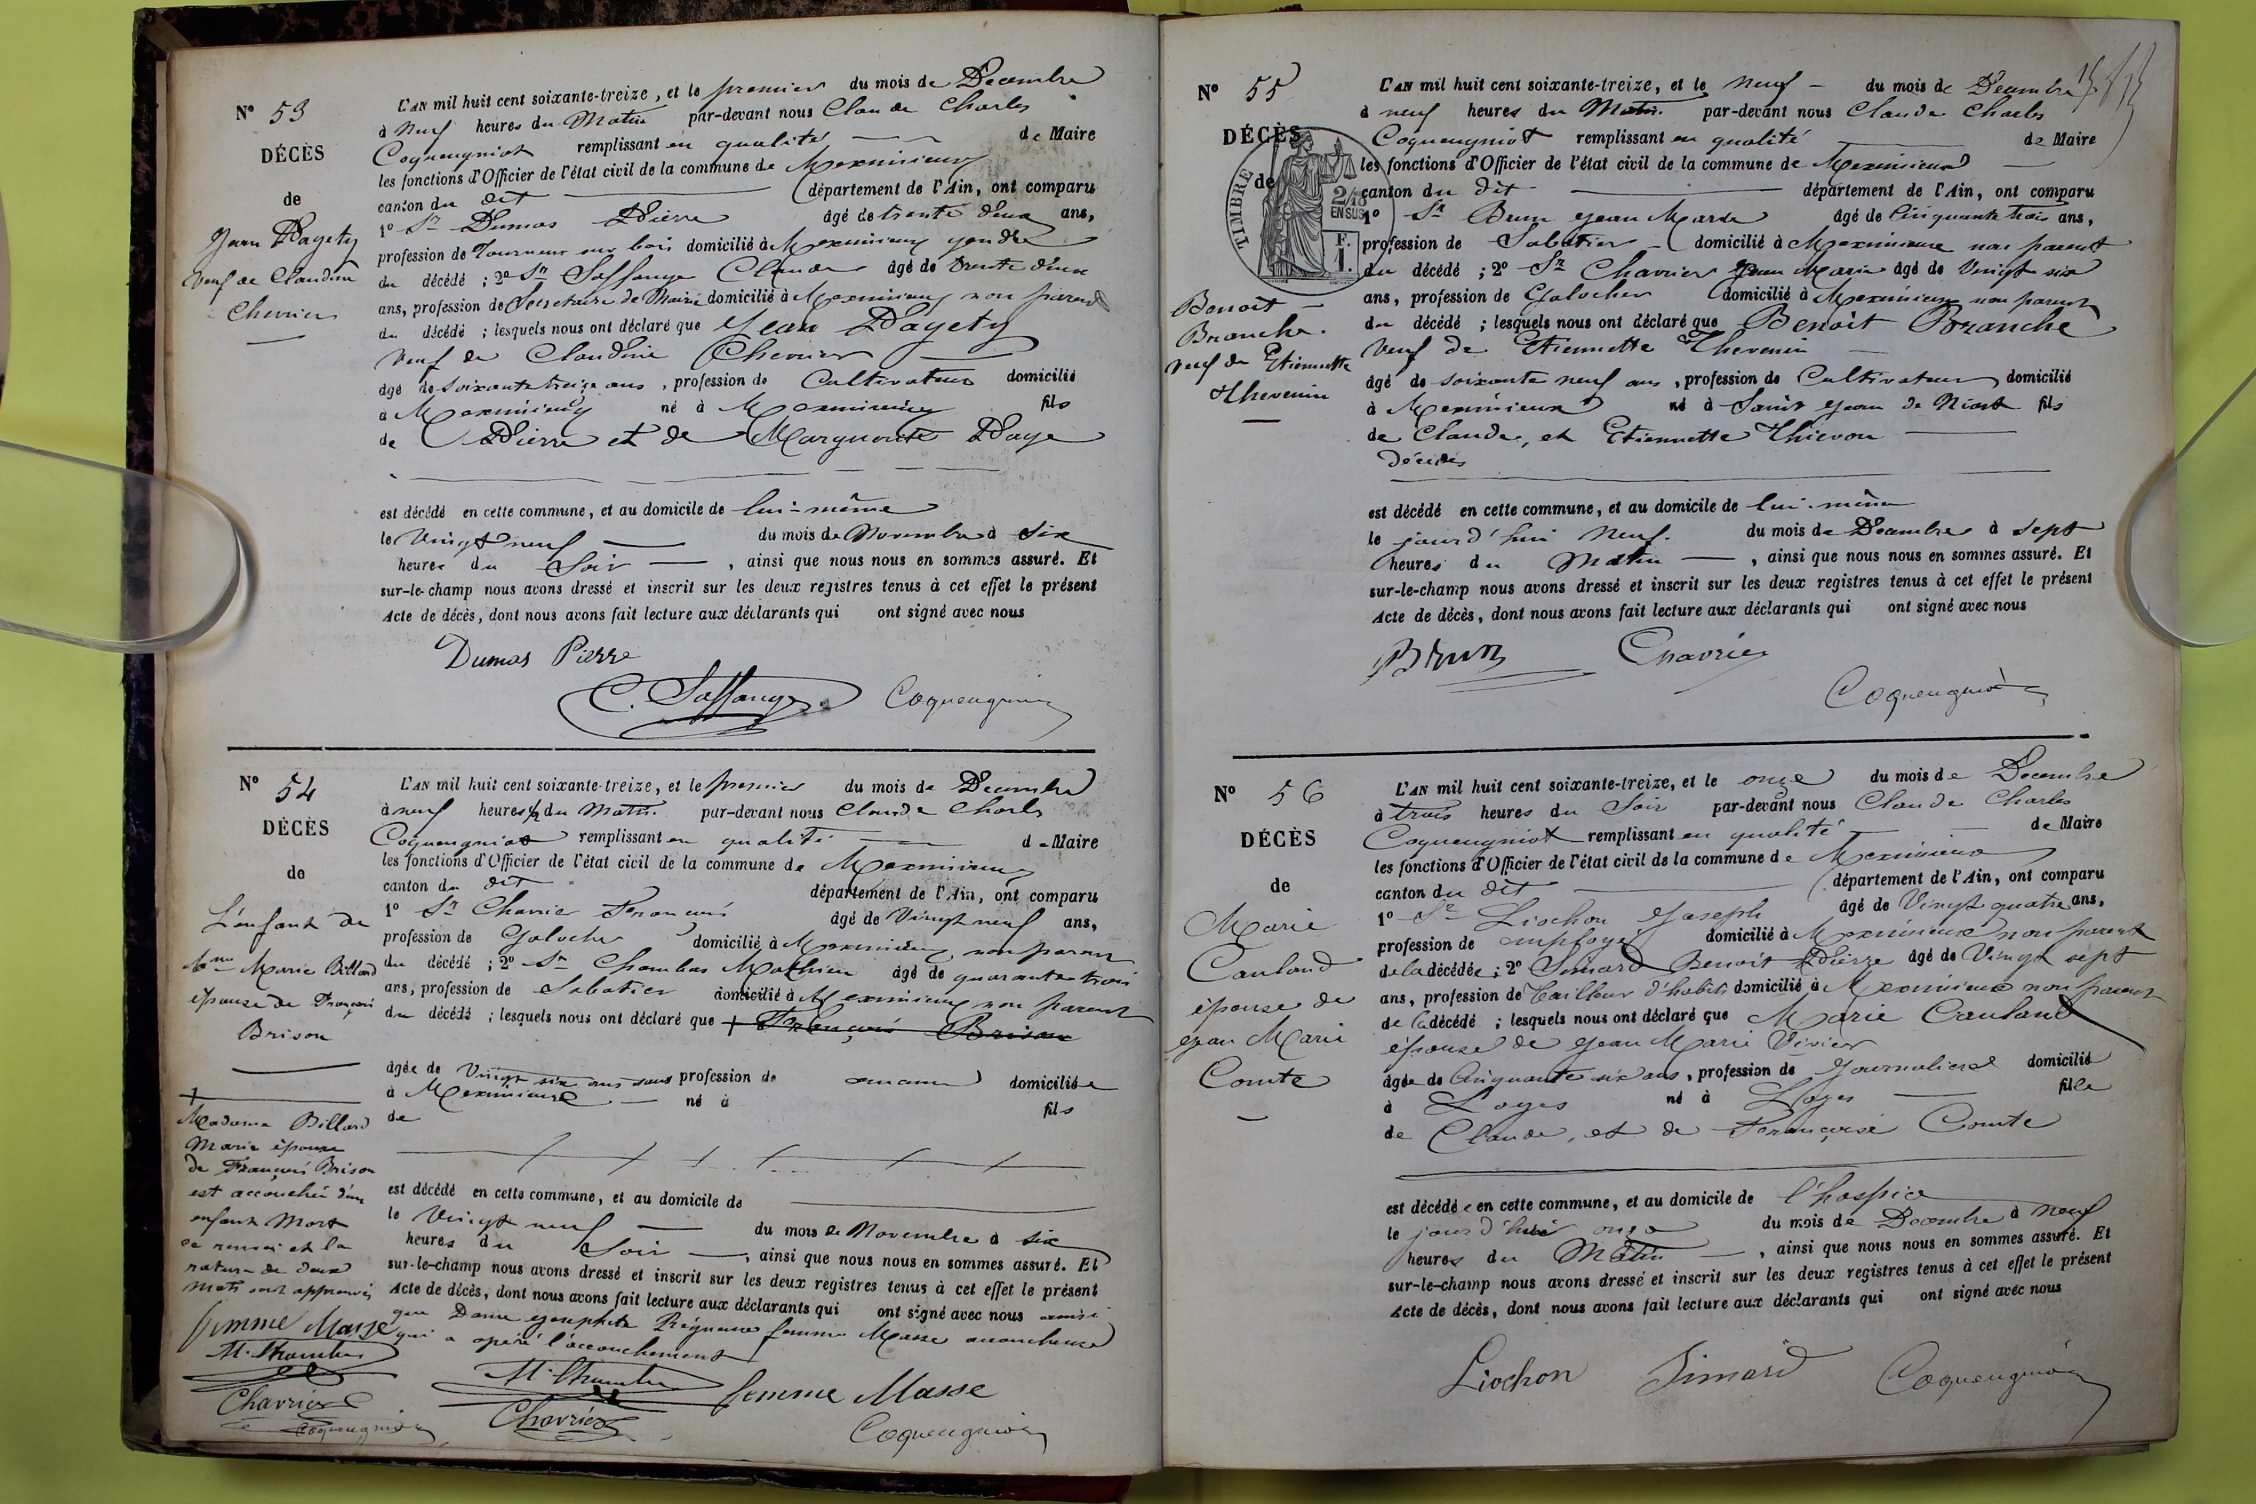 N° 53
DÉCÈS
de
Jean Payety
veuf de Claudine
Chevrier
L'AN mil huit cent soixante-treize, et le premier du mois de Décembre
à neuf heures du Matin par-devant nous Claude Charles
Coqueugniot remplissant en qualité de Maire
les fonctions d'Officier de l'état civil de la commune de Meximieux
canton du dit département de l'Ain, ont comparu
1° Sr Dumas Pierre âgé de trente deux ans,
profession de Tourneur sur bois domicilié à Meximieux gendre
du décédé ; 2° Sr Saffange Claude âgé de trente deux
ans, profession de Secrétaire de Mairie domicilié à Meximieux non parent
du décédé ; lesquels nous ont déclaré que Jean Payety
veuf de Claudine Chevrier
âgé de soixante treize ans, profession de Cultivateur domicilié
à Meximieux né à Meximieux fils
de Pierre et de Marguerite Page
est décédé en cette commune, et au domicile de lui-même
le vingt neuf du mois de Novembre à six
heures du Soir, ainsi que nous nous en sommes assuré. Et
sur-le-champ nous avons dressé et inscrit sur les deux registres tenus à cet effet le présent
Acte de décès, dont nous avons fait lecture aux déclarants qui ont signé avec nous
Dumas Pierre
C. Saffange Coqueugniot
N° 54
DÉCÈS
de
L'enfant de
Mme Marie Billard
épouse de François
Brison
L'AN mil huit cent soixante-treize, et le premier du mois de Décembre
à neuf heures 1/2 du Matin par-devant nous Claude Charles
Coqueugniot remplissant en qualité de Maire
les fonctions d'Officier de l'état civil de la commune de Meximieux
canton du dit département de l'Ain, ont comparu
1° Sr Chavrier François âgé de vingt neuf ans,
profession de Galocher domicilié à Meximieux non parent
du décédé ; 2° Sr Chambas Mathieu âgé de quarante trois
ans, profession de Sabotier domicilié à Meximieux non parent
du décédé ; lesquels nous ont déclaré que + François Brison
âgée de vingt six ans sans profession de domiciliée
à Meximieux né à fils
de
+
Madame Billard
Marie épouse
de François Brison
est accouchée d'un
enfant Mort
ce renvoi et la
rature de deux
mots sont approuvés
femme Masse
M. Chambas
Chavrier
Coqueugniot
est décédé en cette commune, et au domicile de
le vingt neuf du mois de Novembre à six
heures du Soir, ainsi que nous nous en sommes assuré. Et
sur-le-champ nous avons dressé et inscrit sur les deux registres tenus à cet effet le présent
Acte de décès, dont nous avons fait lecture aux déclarants qui ont signé avec nous ainsi
que Dame Josephte femme Masse accoucheuse
qui a opéré l'accouchement
M. Chambas femme Masse
Chavrier Coqueugniot
N° 55
DÉCÈS
de
TIMBRE
2/10
EN SUS
F.
1.
Benoît
Branche
veuf de Etiennette
Thevenin
L'AN mil huit cent soixante-treize, et le neuf du mois de Décembre
à neuf heures du Matin par-devant nous Claude Charles
Coqueugniot remplissant en qualité de Maire
les fonctions d'Officier de l'état civil de la commune de Meximieux
canton du dit département de l'Ain, ont comparu
1° Sr Brun Jean Marie âgé de Cinquante trois ans,
profession de Sabotier domicilié à Meximieux non parent
du décédé ; 2° Sr Chavrier Jean Marie âgé de vingt six
ans, profession de Galocher domicilié à Meximieux non parent
du décédé ; lesquels nous ont déclaré que Benoît Branche
veuf de Etiennette Thevenin
âgé de soixante neuf ans, profession de Cultivateur domicilié
à Meximieux né à Saint Jean de Niort fils
de Claude, et Etiennette Thievon
décédés
est décédé en cette commune, et au domicile de lui-même
le jourd'hui neuf du mois de Décembre à sept
heures du Matin, ainsi que nous nous en sommes assuré. Et
sur-le-champ nous avons dressé et inscrit sur les deux registres tenus à cet effet le présent
Acte de décès, dont nous avons fait lecture aux déclarants qui ont signé avec nous
Brun Chavrier
Coqueugniot
N° 56
DÉCÈS
de
Marie
Cauland
épouse de
Jean Marie
Comte
L'AN mil huit cent soixante-treize, et le onze du mois de Décembre
à trois heures du Soir par-devant nous Claude Charles
Coqueugniot remplissant en qualité de Maire
les fonctions d'Officier de l'état civil de la commune de Meximieux
canton du dit département de l'Ain, ont comparu
1° Sr Liochon Joseph âgé de vingt quatre ans,
profession de employé domicilié à Meximieux non parent
de la décédée ; 2° Simard Benoit Pierre âgé de vingt sept
ans, profession de Tailleur d'habits domicilié à Meximieux non parent
de la décédé ; lesquels nous ont déclaré que Marie Cauland
épouse de Jean Marie Vivier
âgée de Cinquante six ans, profession de Journalière domicilié
à Loyes né à Loyes fille
de Claude, et de Françoise Comte
est décédée en cette commune, et au domicile de l'hospice
le jourd'hui onze du mois de Décembre à neuf
heures du Matin, ainsi que nous nous en sommes assuré. Et
sur-le-champ nous avons dressé et inscrit sur les deux registres tenus à cet effet le présent
Acte de décès, dont nous avons fait lecture aux déclarants qui ont signé avec nous
Liochon Simard Coqueugniot